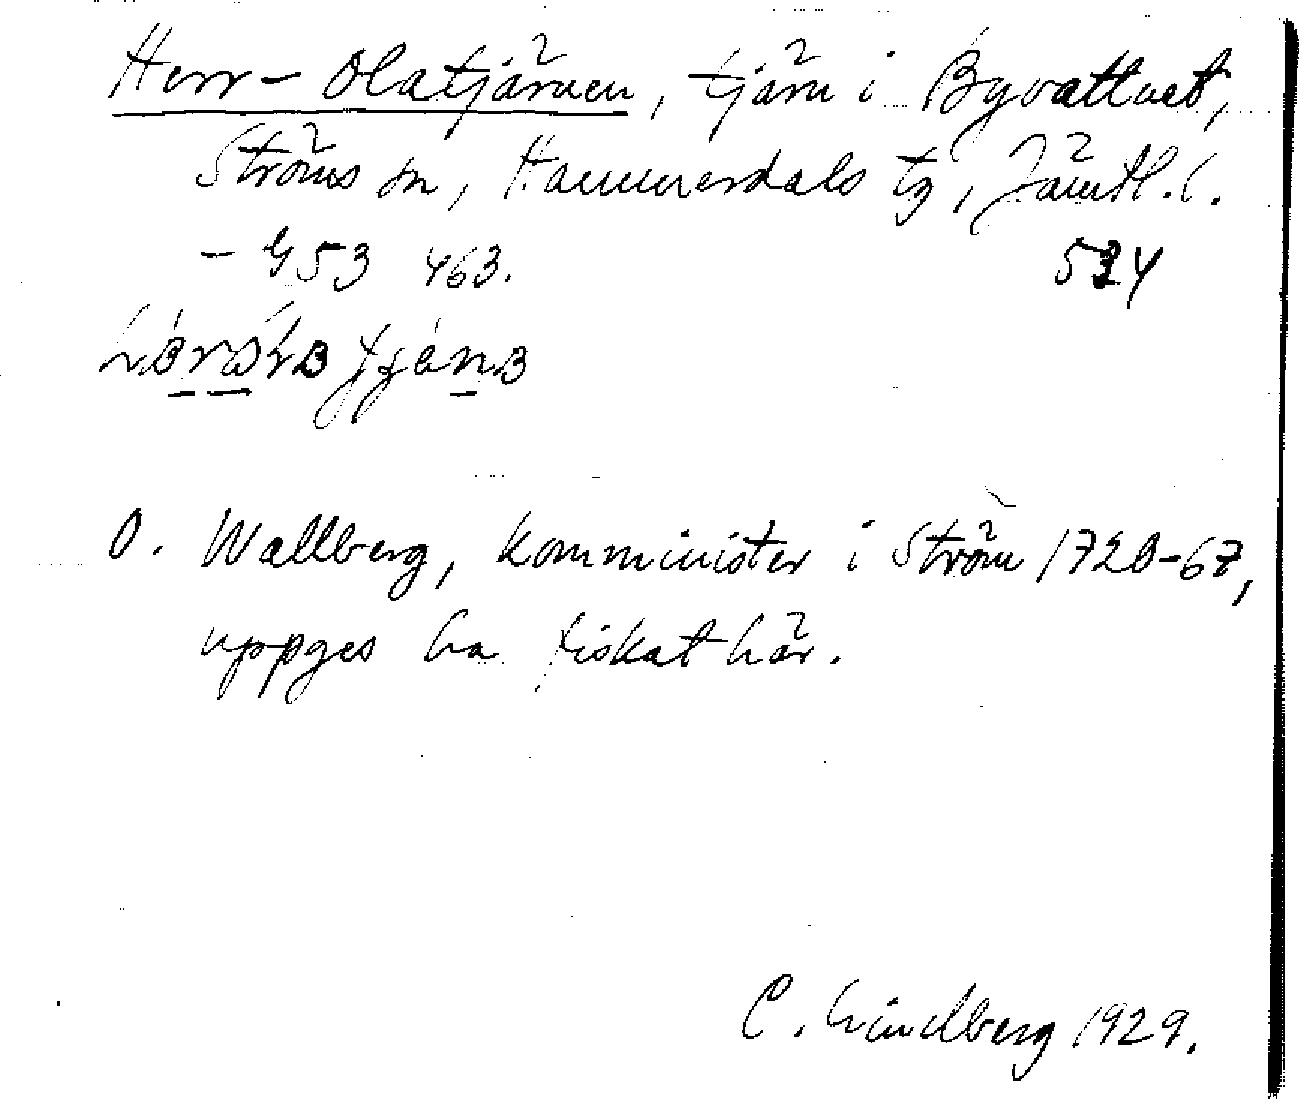 Herr-Olatjärnen, tjärn i Byvattnet,
Ströms sn, Hammerdals tg, Jämtl. l.
- G53 463. 524
O. Wallberg, komminister i Ström 1728-67,
uppges ha fiskat här.
C. Lindberg 1929.